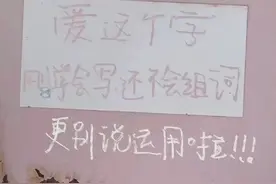 爱这个字
刚学会写还不会组词
更别说运用啦!!!